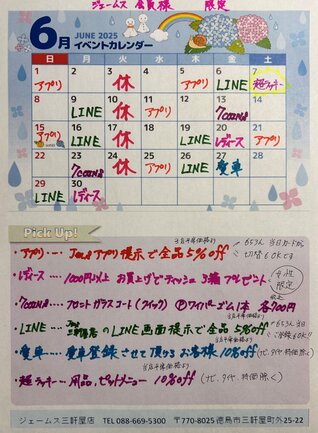 ジェームス 会員様 限定
6月 JUNE 2025
イベントカレンダー
日 月 火 水 木 金 土
1 2 3 4 5 6 7
アプリ 休 アプリ LINE 超ラッキー
8 9 10 11 12 13 14
LINE 休 7COINS
15 16 17 18 19 20 21
アプリ LINE 休 アプリ LINE アプリ
22 23 24 25 26 27 28
7COINS 休 アプリ LINE 愛車
29 30
LINE レディース
Pick Up!
当店平常価格より
・アプリ… Jmsアプリ提示で全品5%off
もちろん 当日カードから
切替もOKです
・レディース … 1000円以上 お買上げでティッシュ 3箱 プレゼント
女性
限定
・7COINS … フロントガラスコート(クイック) Ⓟワイパーゴム1本 各700円
当店平常価格より
・LINE … の LINE画面提示で全品 5%off
もちろん 当日
ご登録もOK!!
当店平常価格より
・愛車 … 愛車登録させて頂けるお客様 10%off (ナビ、タイヤ、特価除く)
当店平常価格より
・超ラッキー … 用品、ピットメニュー 10%off (ナビ、タイヤ、特価除く)
ジェームス三軒屋店 TEL 088-669-5300 〒770-8025 徳島市三軒屋町外25-22